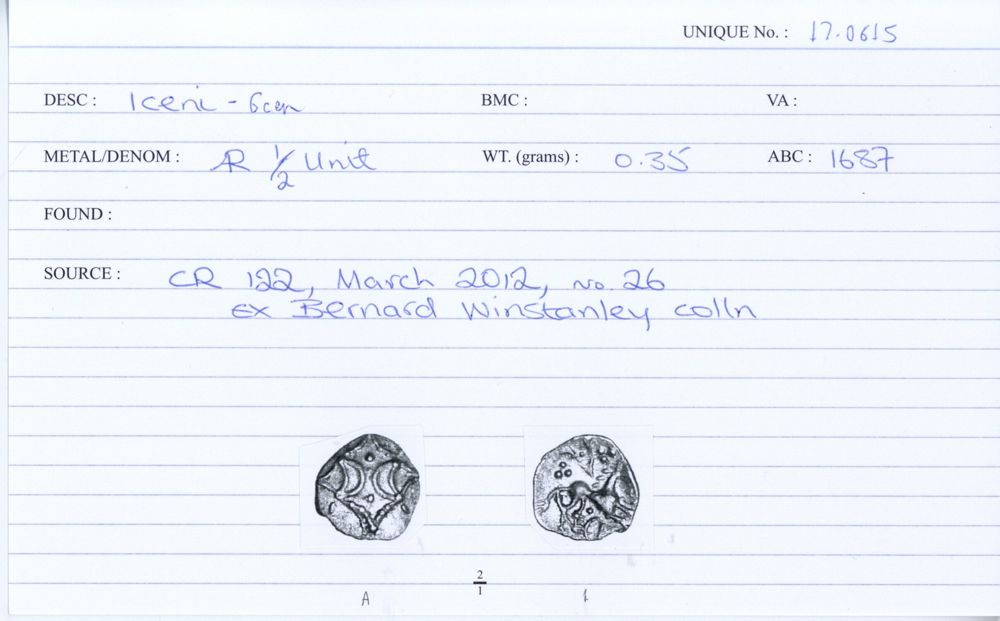 UNIQUE No. : 17.0615
DESC : Iceni - Ecen BMC : VA :
METAL/DENOM : AR 1/2 Unit WT. (grams) : 0.35 ABC : 1687
FOUND :
SOURCE : CR 122, March 2012, no. 26
ex Bernard Winstanley colln
2
1
A 1